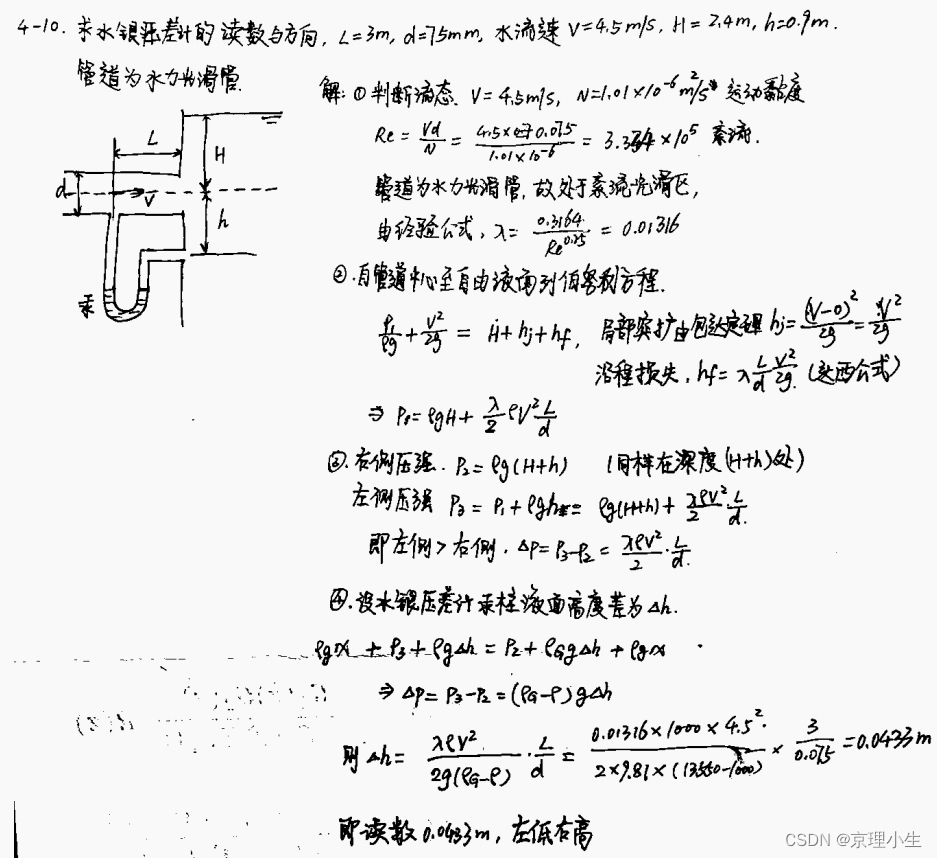 4-10. 求水银压差计的读数与方向, L=3m, d=75mm, 水流速 V=4.5m/s, H=2.4m, h=0.9m.
管道为水力光滑管.
L
H
d
V
h
汞
解: ①判断流态. V=4.5m/s, N=1.01×10⁻⁶m²/s 运动黏度
Re = Vd/N = 4.5×0.075/1.01×10⁻⁶ = 3.34×10⁵ 紊流.
管道为水力光滑管, 故处于紊流光滑区,
由经验公式, λ = 0.3164/Re^0.25 = 0.01316
②. 自管道中心至自由液面列伯努利方程.
P₁/ρg + V²/2g = H + hj + hf, 局部突扩由包达定理 hj = (V-0)²/2g = V²/2g
沿程损失, hf = λ L/d V²/2g (达西公式)
⇒ P₁ = ρgH + λ/2 ρV² L/d
③. 右侧压强. P₂ = ρg(H+h) (同样在深度(H+h)处)
左侧压强 P₃ = P₁ + ρgh = ρg(H+h) + λρV²/2 · L/d.
即左侧>右侧, ΔP = P₃-P₂ = λρV²/2 · L/d.
④. 设水银压差计汞柱液面高度差为Δh.
ρgx + P₃ + ρgΔh = P₂ + ρGgΔh + ρgx
⇒ ΔP = P₃-P₂ = (ρG-ρ)gΔh
则 Δh = λρV²/2g(ρG-ρ) · L/d = 0.01316×1000×4.5²/2×9.81×(13550-1000) × 3/0.075 = 0.0433m
即读数0.0433m, 左低右高
CSDN @京理小生